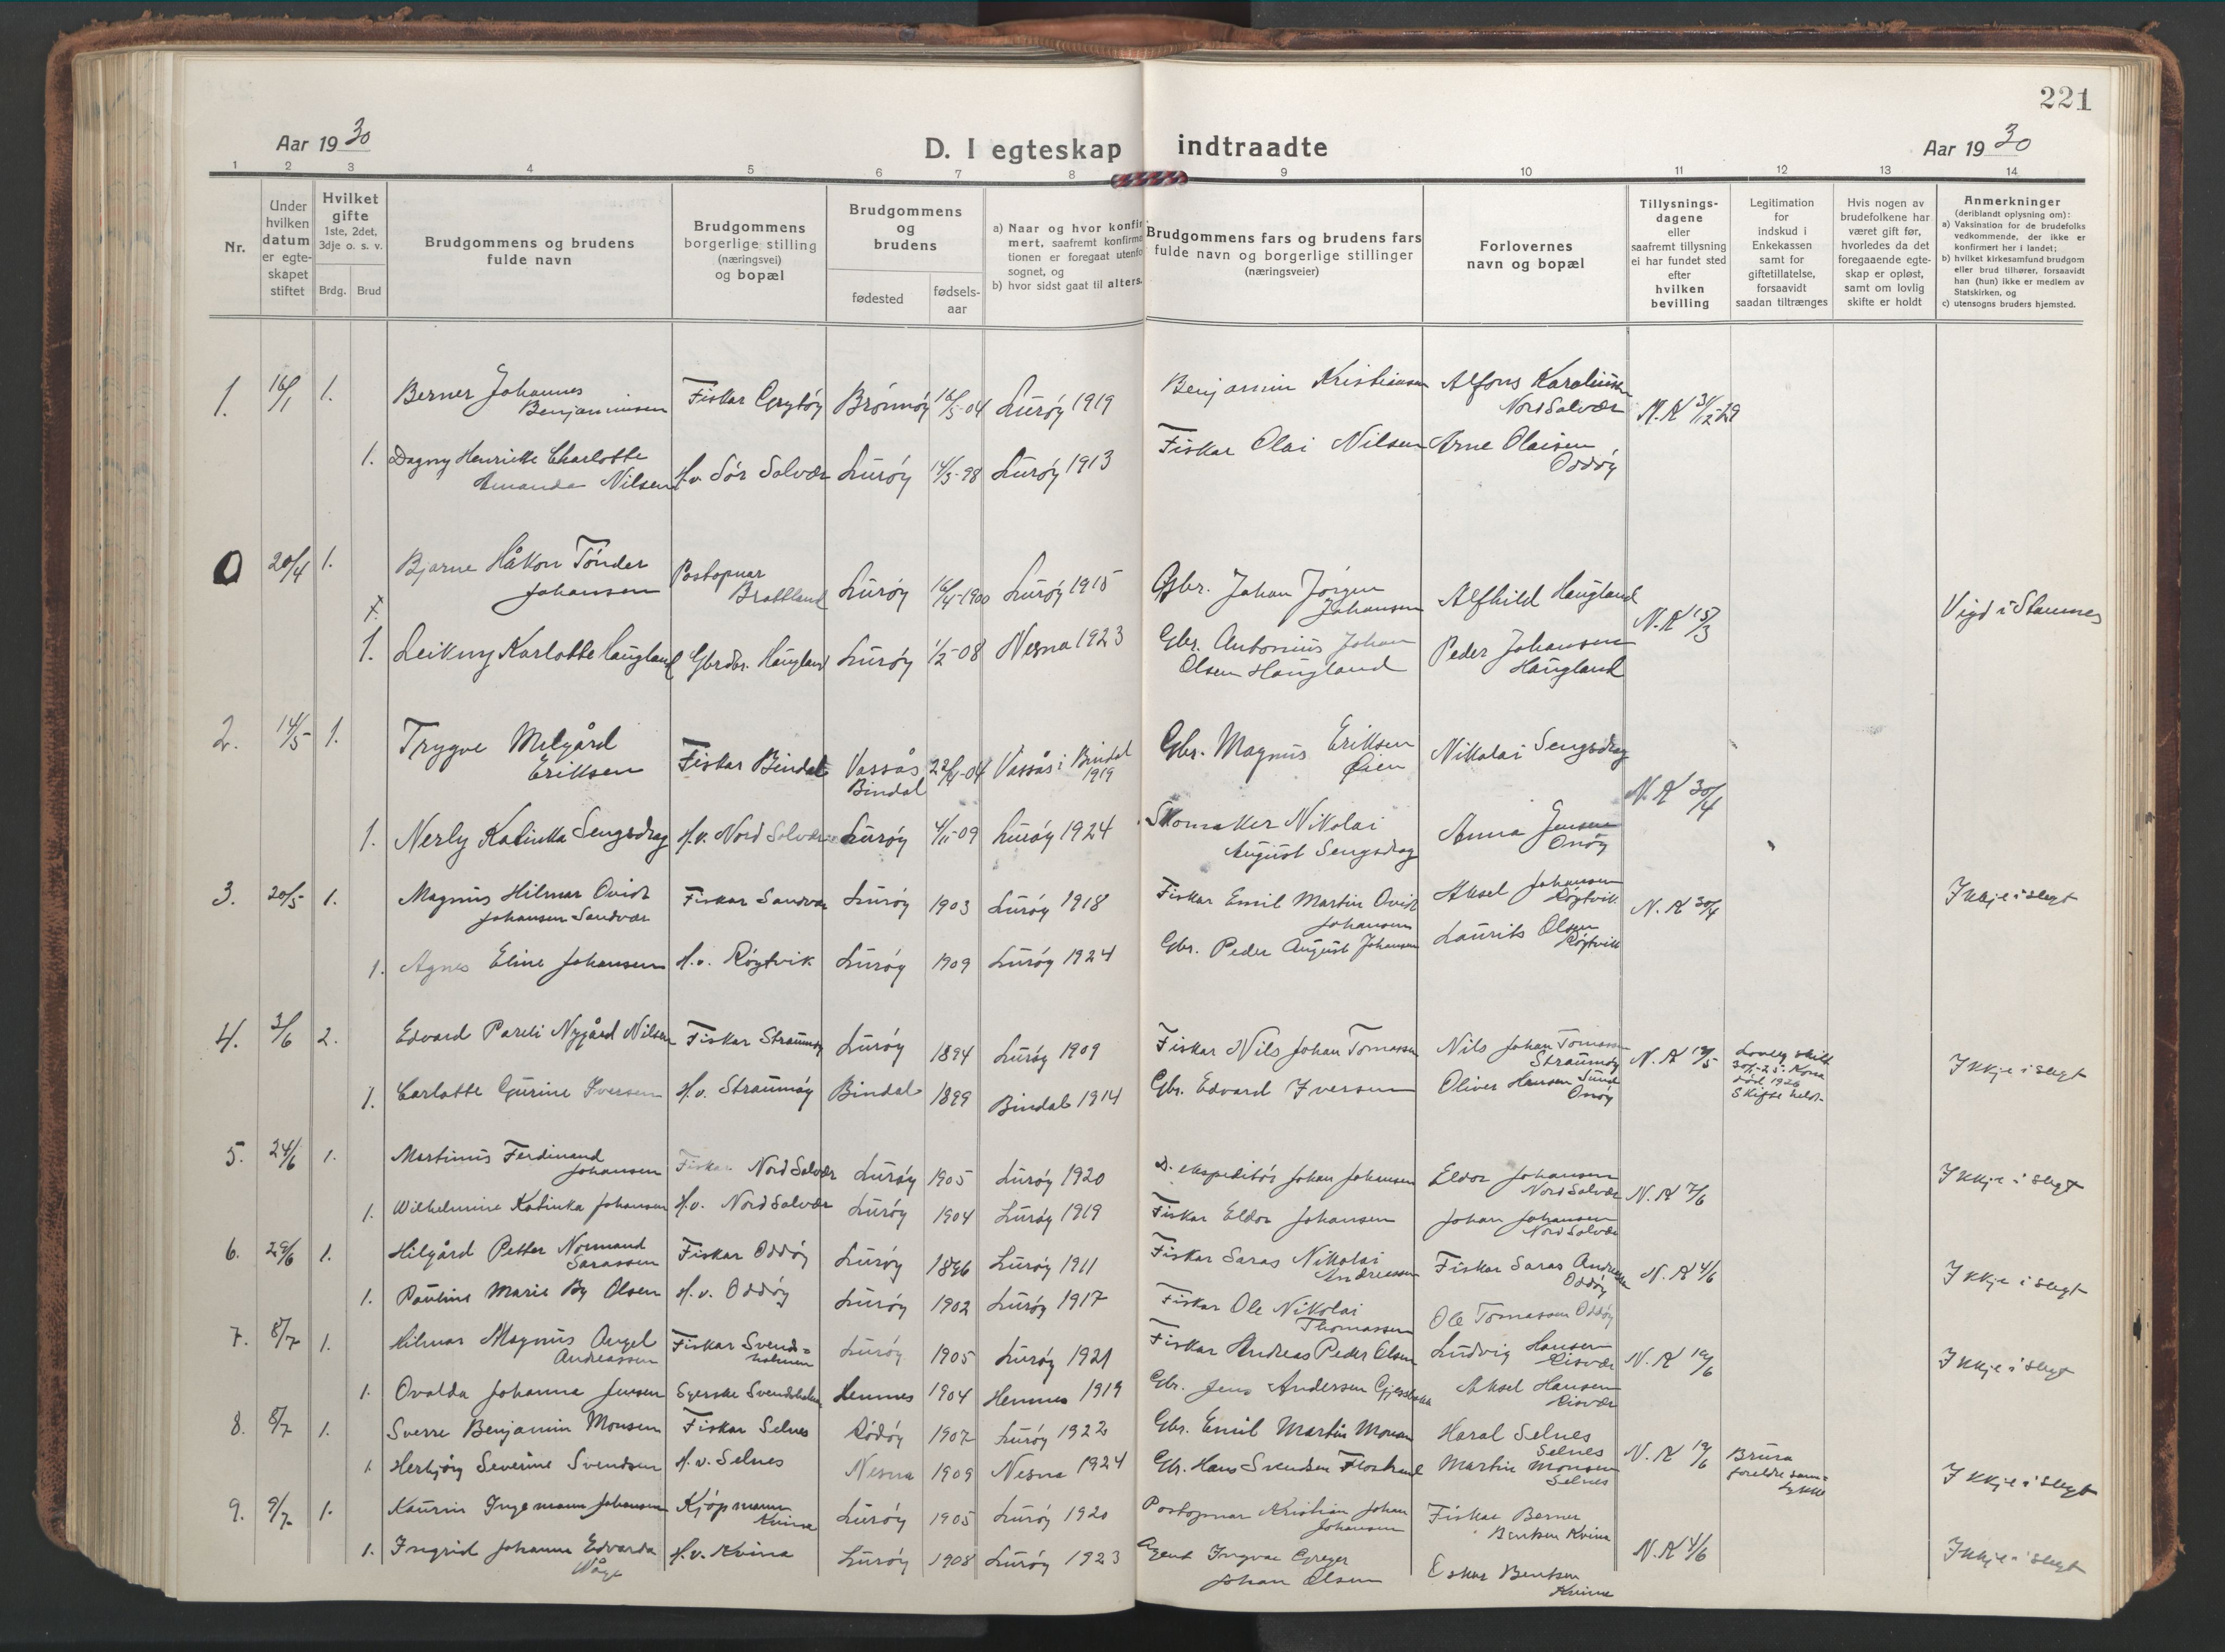 221
Aar 1930
D. I egteskap indtraadte
Aar 1930
1 2 3 4 5 6 7 8 9 10 11 12 13 14
Nr.
Under
hvilken
datum
er egte-
skapet
stiftet
Hvilket
gifte
1ste, 2det,
3dje o. s. v.
Brdg. Brud
Brudgommens og brudens
fulde navn
Brudgommens
borgerlige stilling
(næringsvei)
og bopæl
Brudgommens
og
brudens
fødested
fødsels-
aar
a) Naar og hvor konfir
mert, saafremt konfirma
tionen er foregaat utenfo
sognet, og
b) hvor sidst gaat til alters.
Brudgommens fars og brudens fars
fulde navn og borgerlige stillinger
(næringsveier)
Forlovernes
navn og bopæl
Tillysnings-
dagene
eller
saafremt tillysning
ei har fundet sted
efter
hvilken
bevilling
Legitimation
for
indskud i
Enkekassen
samt for
giftetillatelse,
forsaavidt
saadan tiltrænges
Hvis nogen av
brudefolkene har
været gift før,
hvorledes da det
foregaaende egte-
skap er opløst,
samt om lovlig
skifte er holdt
Anmerkninger
(deriblandt oplysning om):
a) Vaksination for de brudefolks
vedkommende, der ikke er
konfirmert her i landet;
b) hvilket kirkesamfund brudgom
eller brud tilhører, forsaavidt
han (hun) ikke er medlem av
Statskirken, og
c) utensogns bruders hjemsted.
1. 16/1 1. Berner Johannes
Benjaminsen Fiskar Grytöy Brönnöy 16/5-04 Luröy 1919 Benjamin Kristiansen Alfons Karoliussen
Nord Solvær N.K 31/12-29
1. Dagny Henrikke Charlotte
Amanda Nilsen H.v. Sör Solvær Luröy 14/3-98 Luröy 1913 Fiskar Olai Nilsen Arne Olaisen
Oddöy
0 20/4 1. Bjarne Håkon Tönder
Johansen Postopnar
Brattland Luröy 16/4-1900 Luröy 1915 Gbr. Johan Jörgen
Johansen Alfhild Haugland N.K 15/3 Vigd i Stamnes
1. Leikny Karlotte Haugland Gbrdr. Haugland Luröy 1/2-08 Nesna 1923 Gbr. Antonius Johan
Olsen Haugland Peder Johansen
Haugland
2. 14/5 1. Trygve Melgård
Eriksen Fiskar Bindal Vassås
Bindal 22/4-04 Vassås i Bindal
1919 Gbr. Magnus Eriksen
Øien Nikolai Sengsdrag N.K 30/4
1. Nerly Katinka Sengsdrag H.v. Nord Solvær Luröy 4/11-09 Luröy 1924 Skomaker Nikolai
August Sengsdrag Anna Jensen
Onöy
3. 20/5 1. Magnus Hilmar Ovidt
Johansen Sandvær Fiskar Sandvær Luröy 1903 Luröy 1918 Fiskar Emil Martin Ovidt
Johansen Aksel Johansen
Röytvik N.K 30/4 Ikkje i slegt
1. Agnes Eline Johansen H.v. Röytvik Luröy 1909 Luröy 1924 Gbr. Peder August Johansen Laurits Olsen
Röytvik
4. 3/6 2. Edvard Pareli Nygård Nilsen Fiskar Straumöy Luröy 1894 Luröy 1909 Fiskar Nils Johan Tomassen Nils Johan Tomassen
Straumöy N.K 19/5 Ikkje i slegt
1. Carlotte Gurine Iversen H.v. Straumöy Bindal 1899 Bindal 1914 Gbr. Edvard Iversen Oliver Hansen Sund
Onöy
Lovleg skilt
Kona
död 1926
Skifte heldt
5. 24/6 1. Martinus Ferdinand
Johansen Fiskar Nord Solvær Luröy 1905 Luröy 1920 D. ekspeditör Johan Johansen Eldor Johansen
Nord Solvær N.K 7/6 Ikkje i slegt
1. Wilhelmine Katinka Johansen H.v. Nord Solvær Luröy 1904 Luröy 1919 Fiskar Eldor Johansen Johan Johansen
Nord Solvær
6. 29/6 1. Hilgård Petter Normand
Sarassen Fiskar Oddöy Luröy 1896 Luröy 1911 Fiskar Saras Nikolai
Andreassen Fiskar Saras Andreassen
Oddöy N.K 4/6 Ikkje i slegt
1. Pauline Marie By Olsen H.v. Oddöy Luröy 1902 Luröy 1917 Fiskar Ole Nikolai
Thomassen Ole Tomassen Oddöy
7. 8/7 1. Hilmar Magnus Angel
Andreassen Fiskar Svends=
holmen Luröy 1905 Luröy 1921 Fiskar Andreas Peder Olsen Ludvig Hansen
Risvær N.K 19/6 Ikkje i slegt
1. Ovalda Johanna Jensen Syerske Svendsholmen Hemnes 1904 Hemnes 1919 Gbr. Jens Andersen Aksel Hansen
Risvær
8. 8/7 1. Sverre Benjamin Monsen Fiskar Selnes Rödöy 1907 Luröy 1922 Gbr. Emil Martin Monsen Haral Selnes
Selnes N.K 19/6 Brura
foreldre sam=
tykke
1. Herbjörg Severine Svendsen H.v. Selnes Nesna 1909 Nesna 1924 Gbr. Hans Svendsen Flostrand Martin Monsen
Selnes Ikkje i slegt
9. 9/7 1. Kaurin Ingemann Johansen Kjöpmann
Kvina Luröy 1905 Luröy 1920 Postopnar Kristian Johan
Johansen Fiskar Berner
Bentsen Kvina N.K 4/6
1. Ingrid Johanne Edvarda
Våge H.v. Kvina Luröy 1908 Luröy 1923 Agent Ingvar Greger
Johan Olsen Eskar Bentsen
Kvina Ikkje i slegt